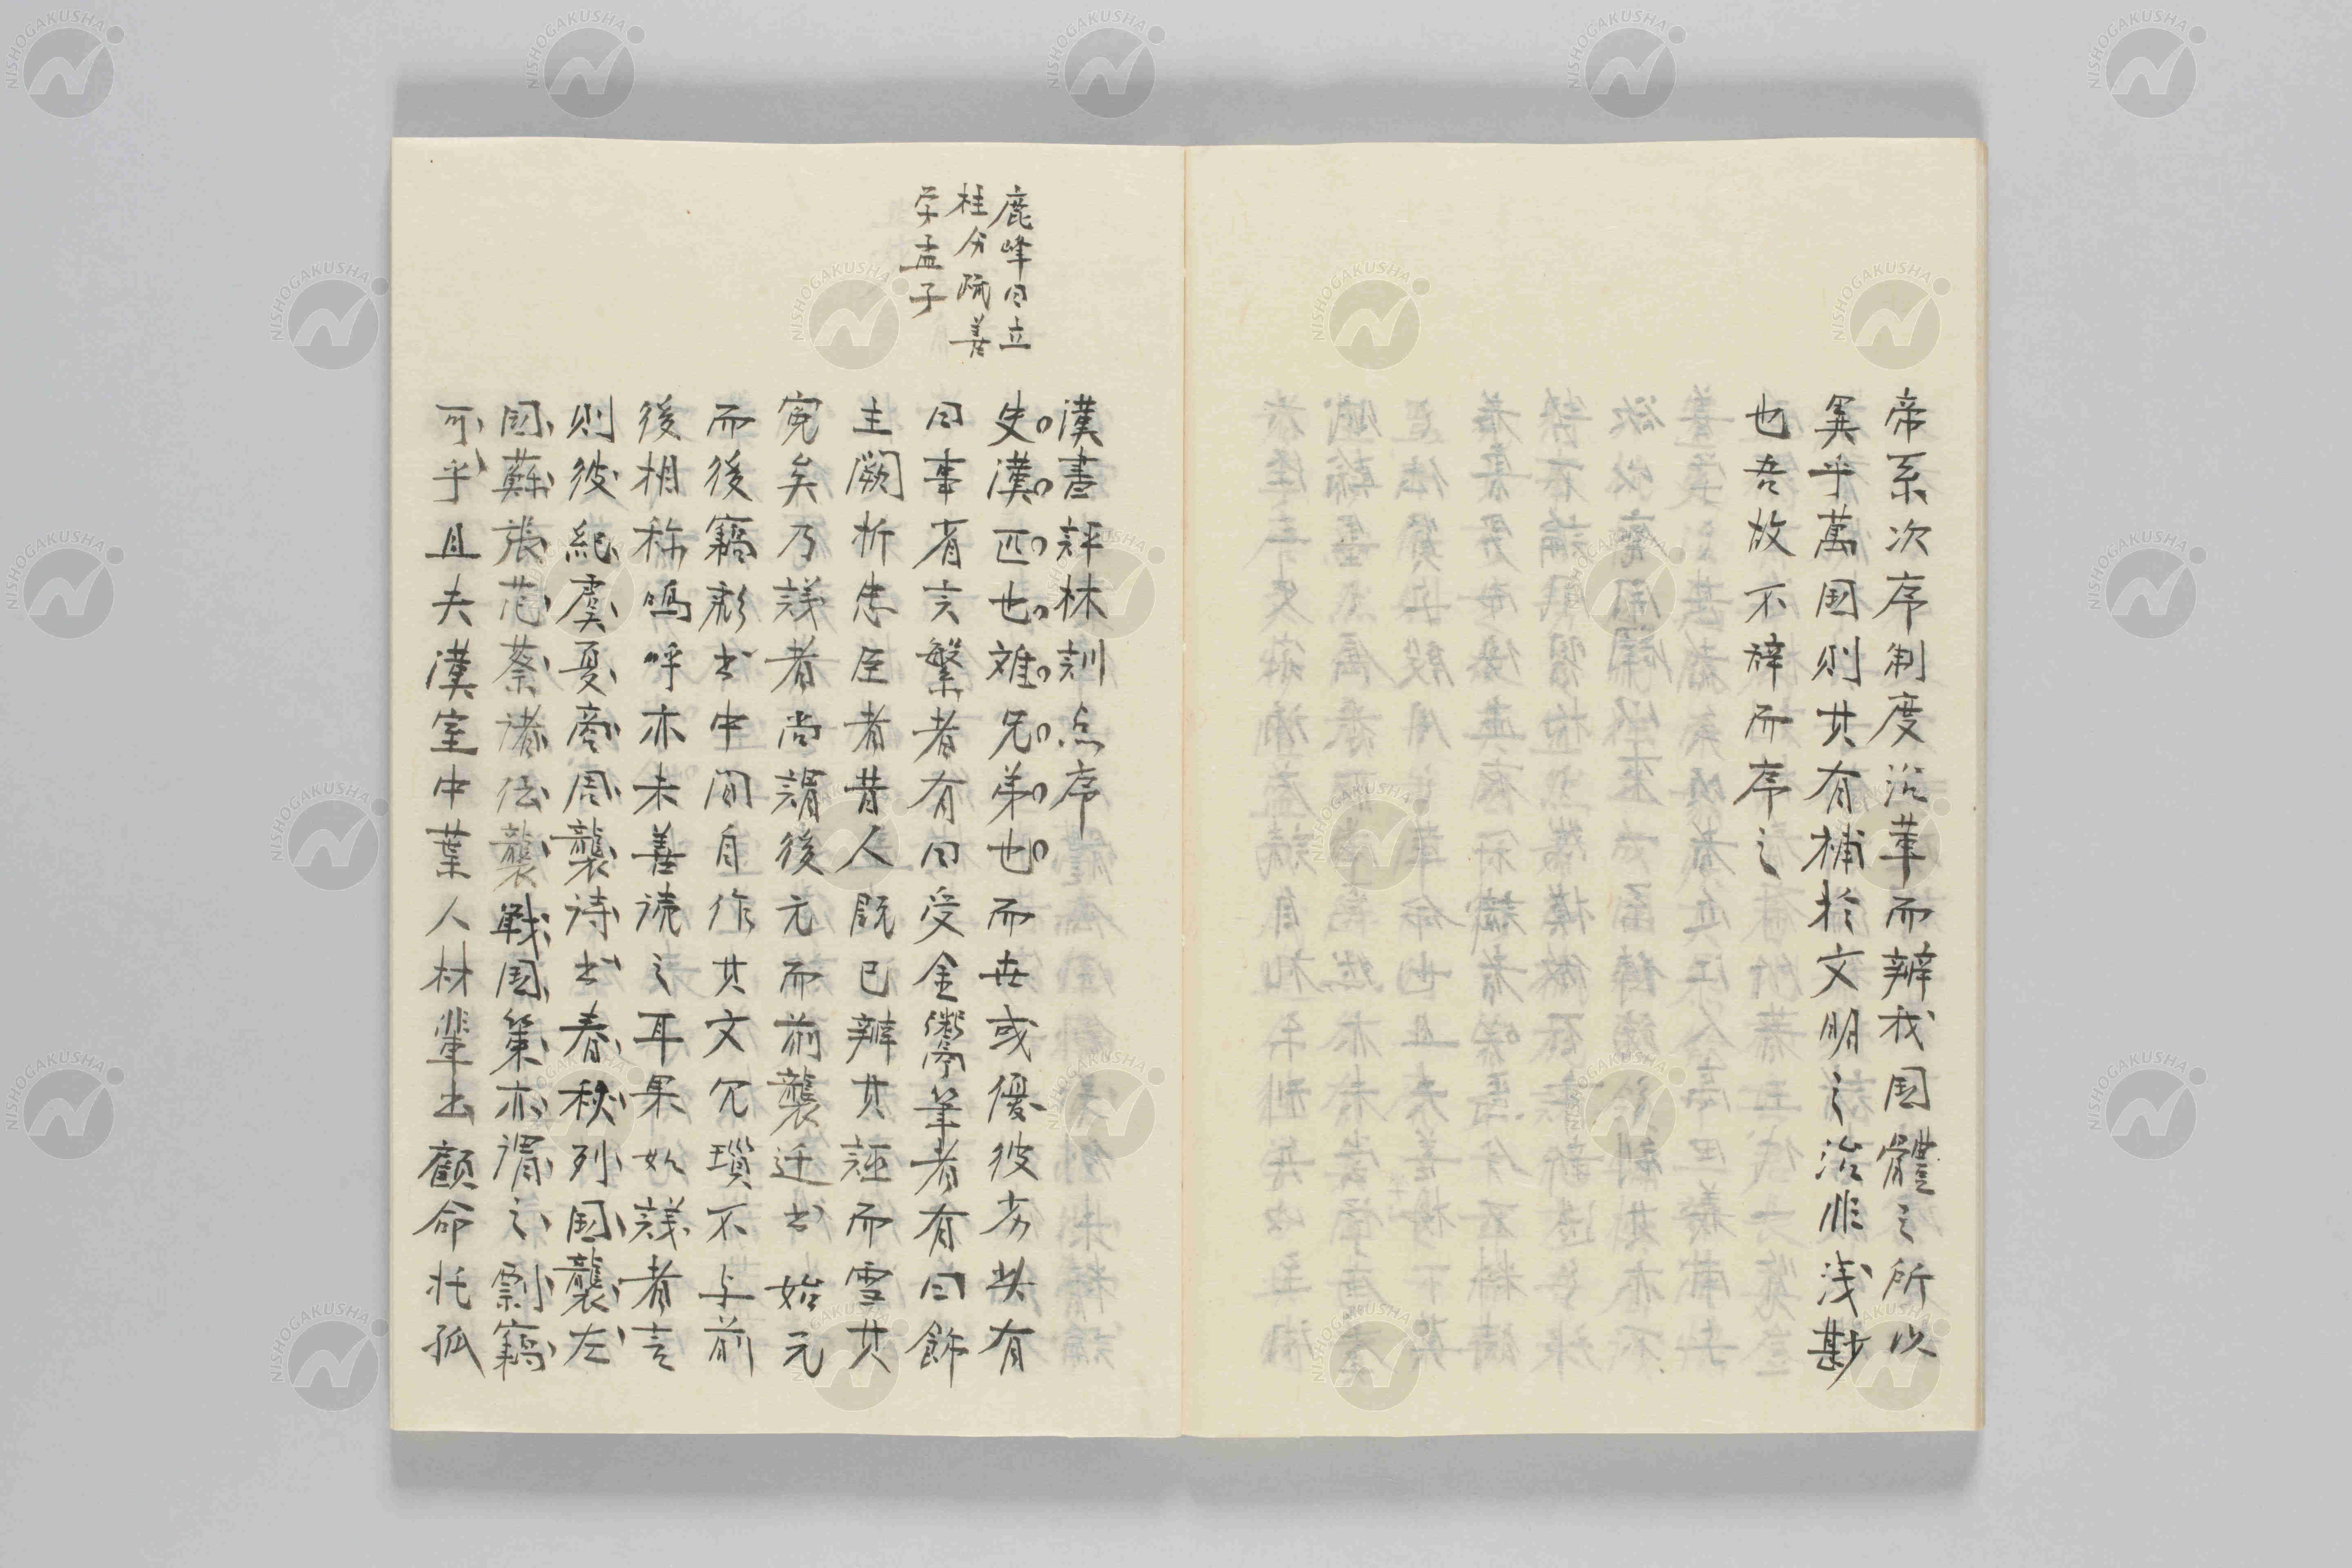 帝系次序制度沿革而辨我国體之所以
異乎萬国則其有補於文明之治非浅尠
也吾故不辞而序之
鹿峰曰立
柱分疏善
学孟子
漢書評林訓点序
史漢匹也雖兄弟也而世或優彼劣此有
曰事省言繁者有曰受金鬻筆者有曰飾
主闕折忠臣者昔人既已辨其誣而雪其
冤矣乃議者尚謂後元而前襲迁書始元
而後竊彪书中间自作其文冗瑣不与前
後相称嗚呼亦未善读之耳果如議者言
則彼紀虞夏商周襲诗书春秋列国襲左
国蘇張范蔡诸伝襲戦国策亦謂之剽竊
可乎且夫漢室中葉人材輩出顧命托孤
NISHOGAKUSHA